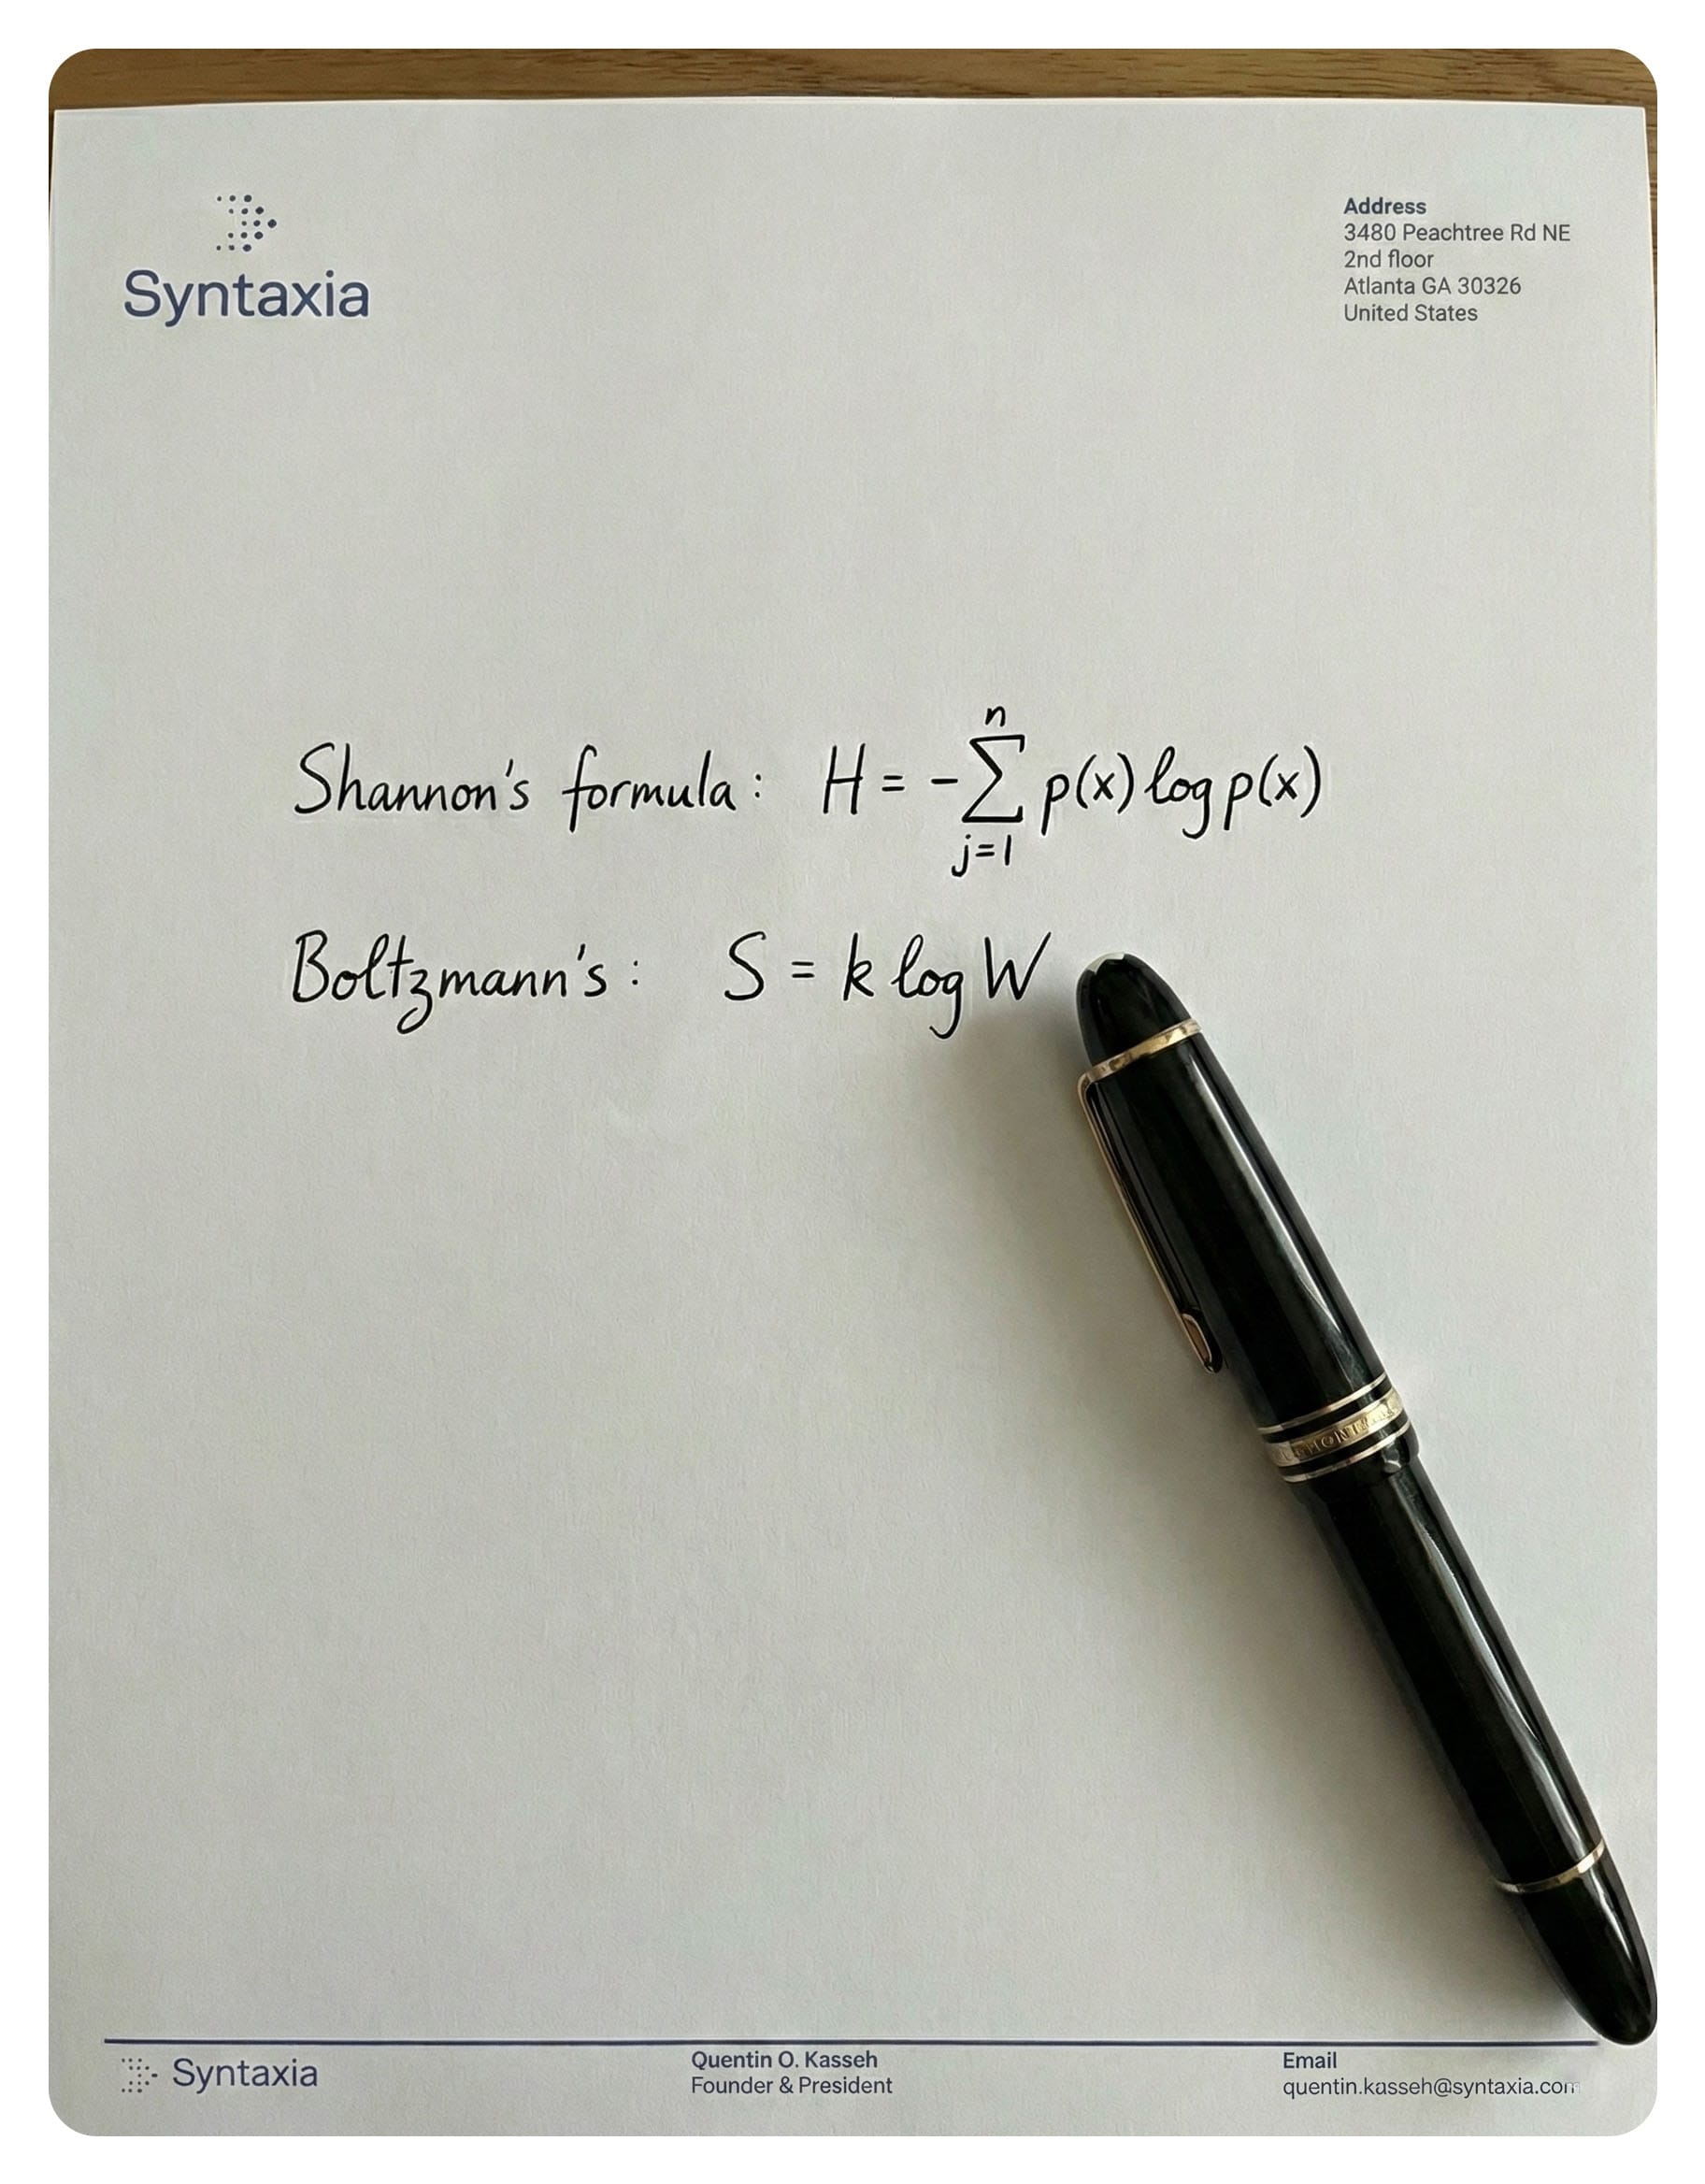 Syntaxia
Address
3480 Peachtree Rd NE
2nd floor
Atlanta GA 30326
United States
Shannon's formula: H = -∑ⁿⱼ₌₁ p(x) log p(x)
Boltzmann's: S = k log W
Syntaxia
Quentin O. Kasseh
Founder & President
Email
quentin.kasseh@syntaxia.com